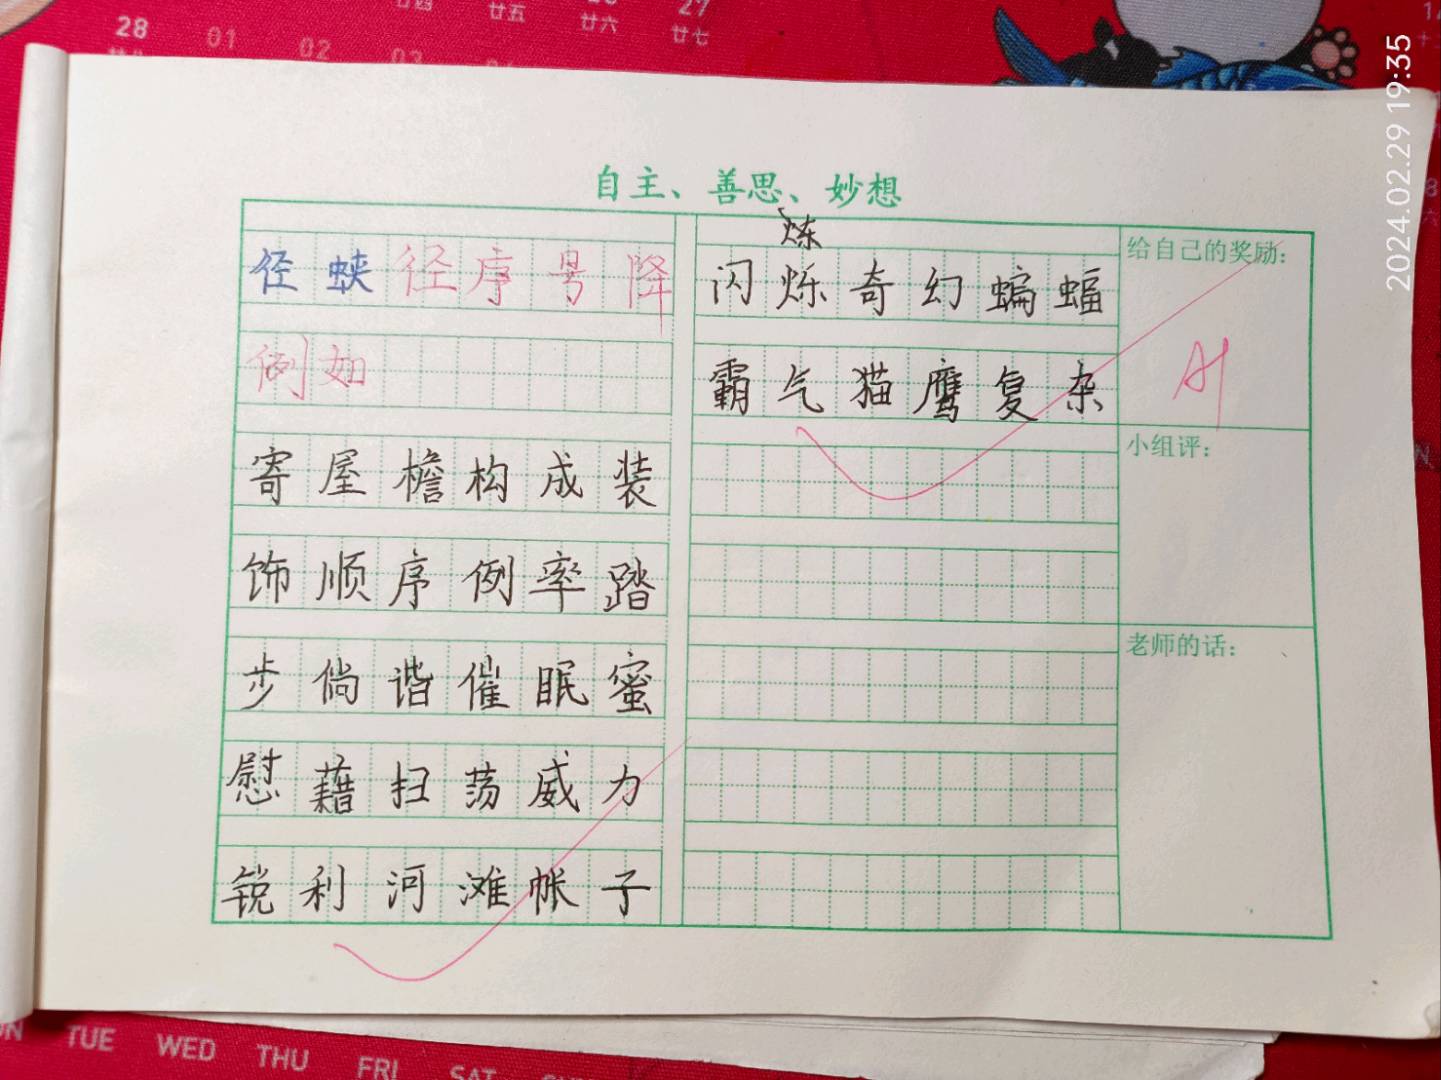 28 01 02 03
廿四 廿五 廿六 27 廿七
2024.02.29 19:35
自主、善思、妙想
径 蛱 径 序 号 降
例 如
寄 屋 檐 构 成 装
饰 顺 序 例 率 踏
步 倘 谐 催 眠 蜜
慰 藉 扫 荡 威 力
锐 利 河 滩 帐 子
炼
闪 烁 奇 幻 蝙 蝠
霸 气 猫 鹰 复 杂
给自己的奖励：
小组评：
老师的话：
TUE WED THU FRI SAT